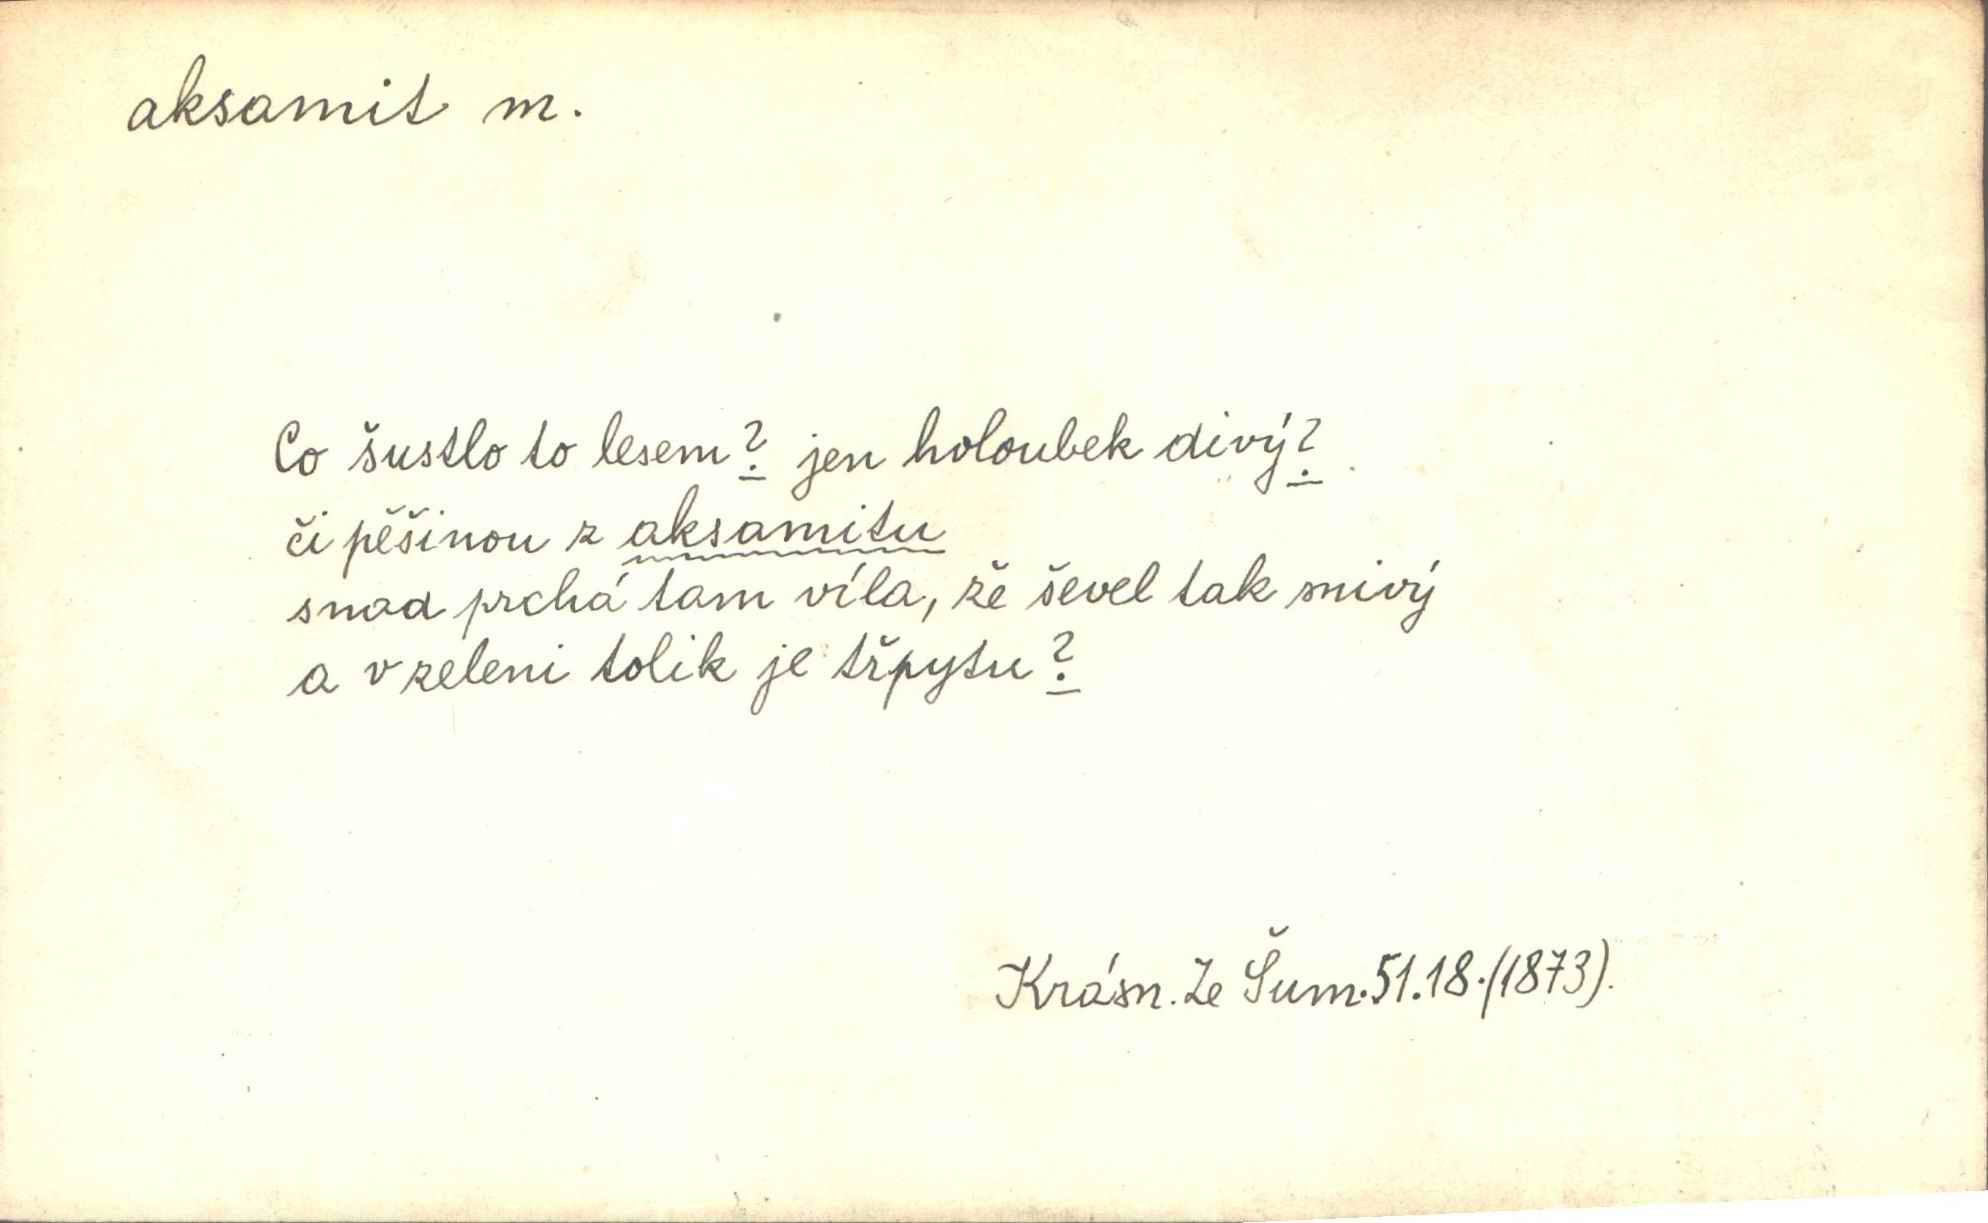 aksamit m.
Co šustlo to lesem? jen holoubek divý?
či pěšinou z aksamitu
snad prchá tam víla, že ševel tak snivý
a v zeleni tolik je třpytu?
Krásn. Ze Šum. 51.18. (1873).